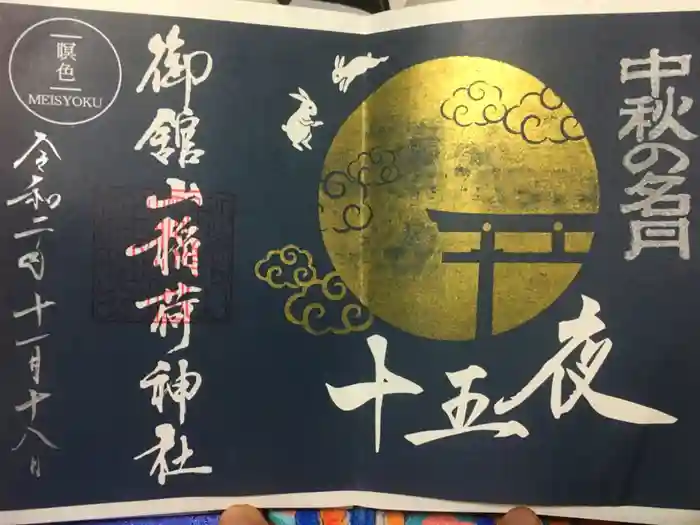 中秋の名月
十五夜
御舘山稲荷神社
令和二年十一月十八日
瞑色
MEISYOKU